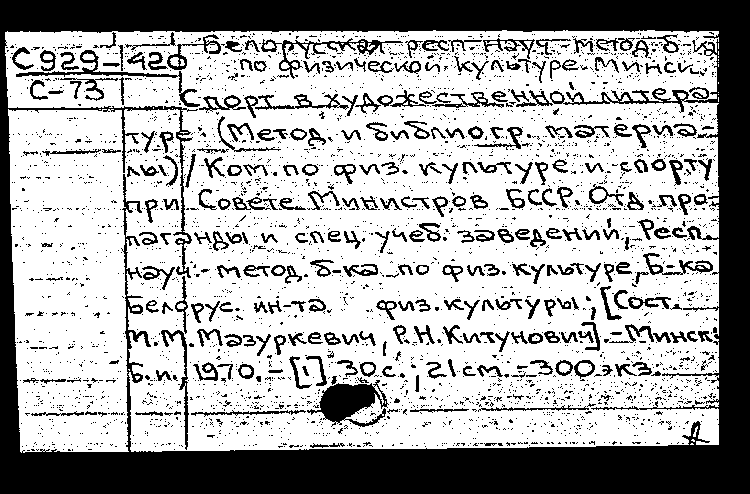 С929-420 Белорусская респ. науч.-метод. б-ка
по физической культуре. Минск.
С-73
Спорт в художественной литера-
туре: (Метод. и библиогр. материа-
лы) / Ком. по физ. культуре и спорту
при Совете Министров БССР. Отд. про-
паганды и спец. учеб. заведений, Респ.
науч.-метод. б-ка по физ. культуре, Б-ка
Белорус. ин-та физ. культуры; [Сост.
М.М. Мазуркевич, Р.Н. Китунович]. - Минск:
Б.и., 1970. - [1], 30 с.; 21 см. - 300 экз.